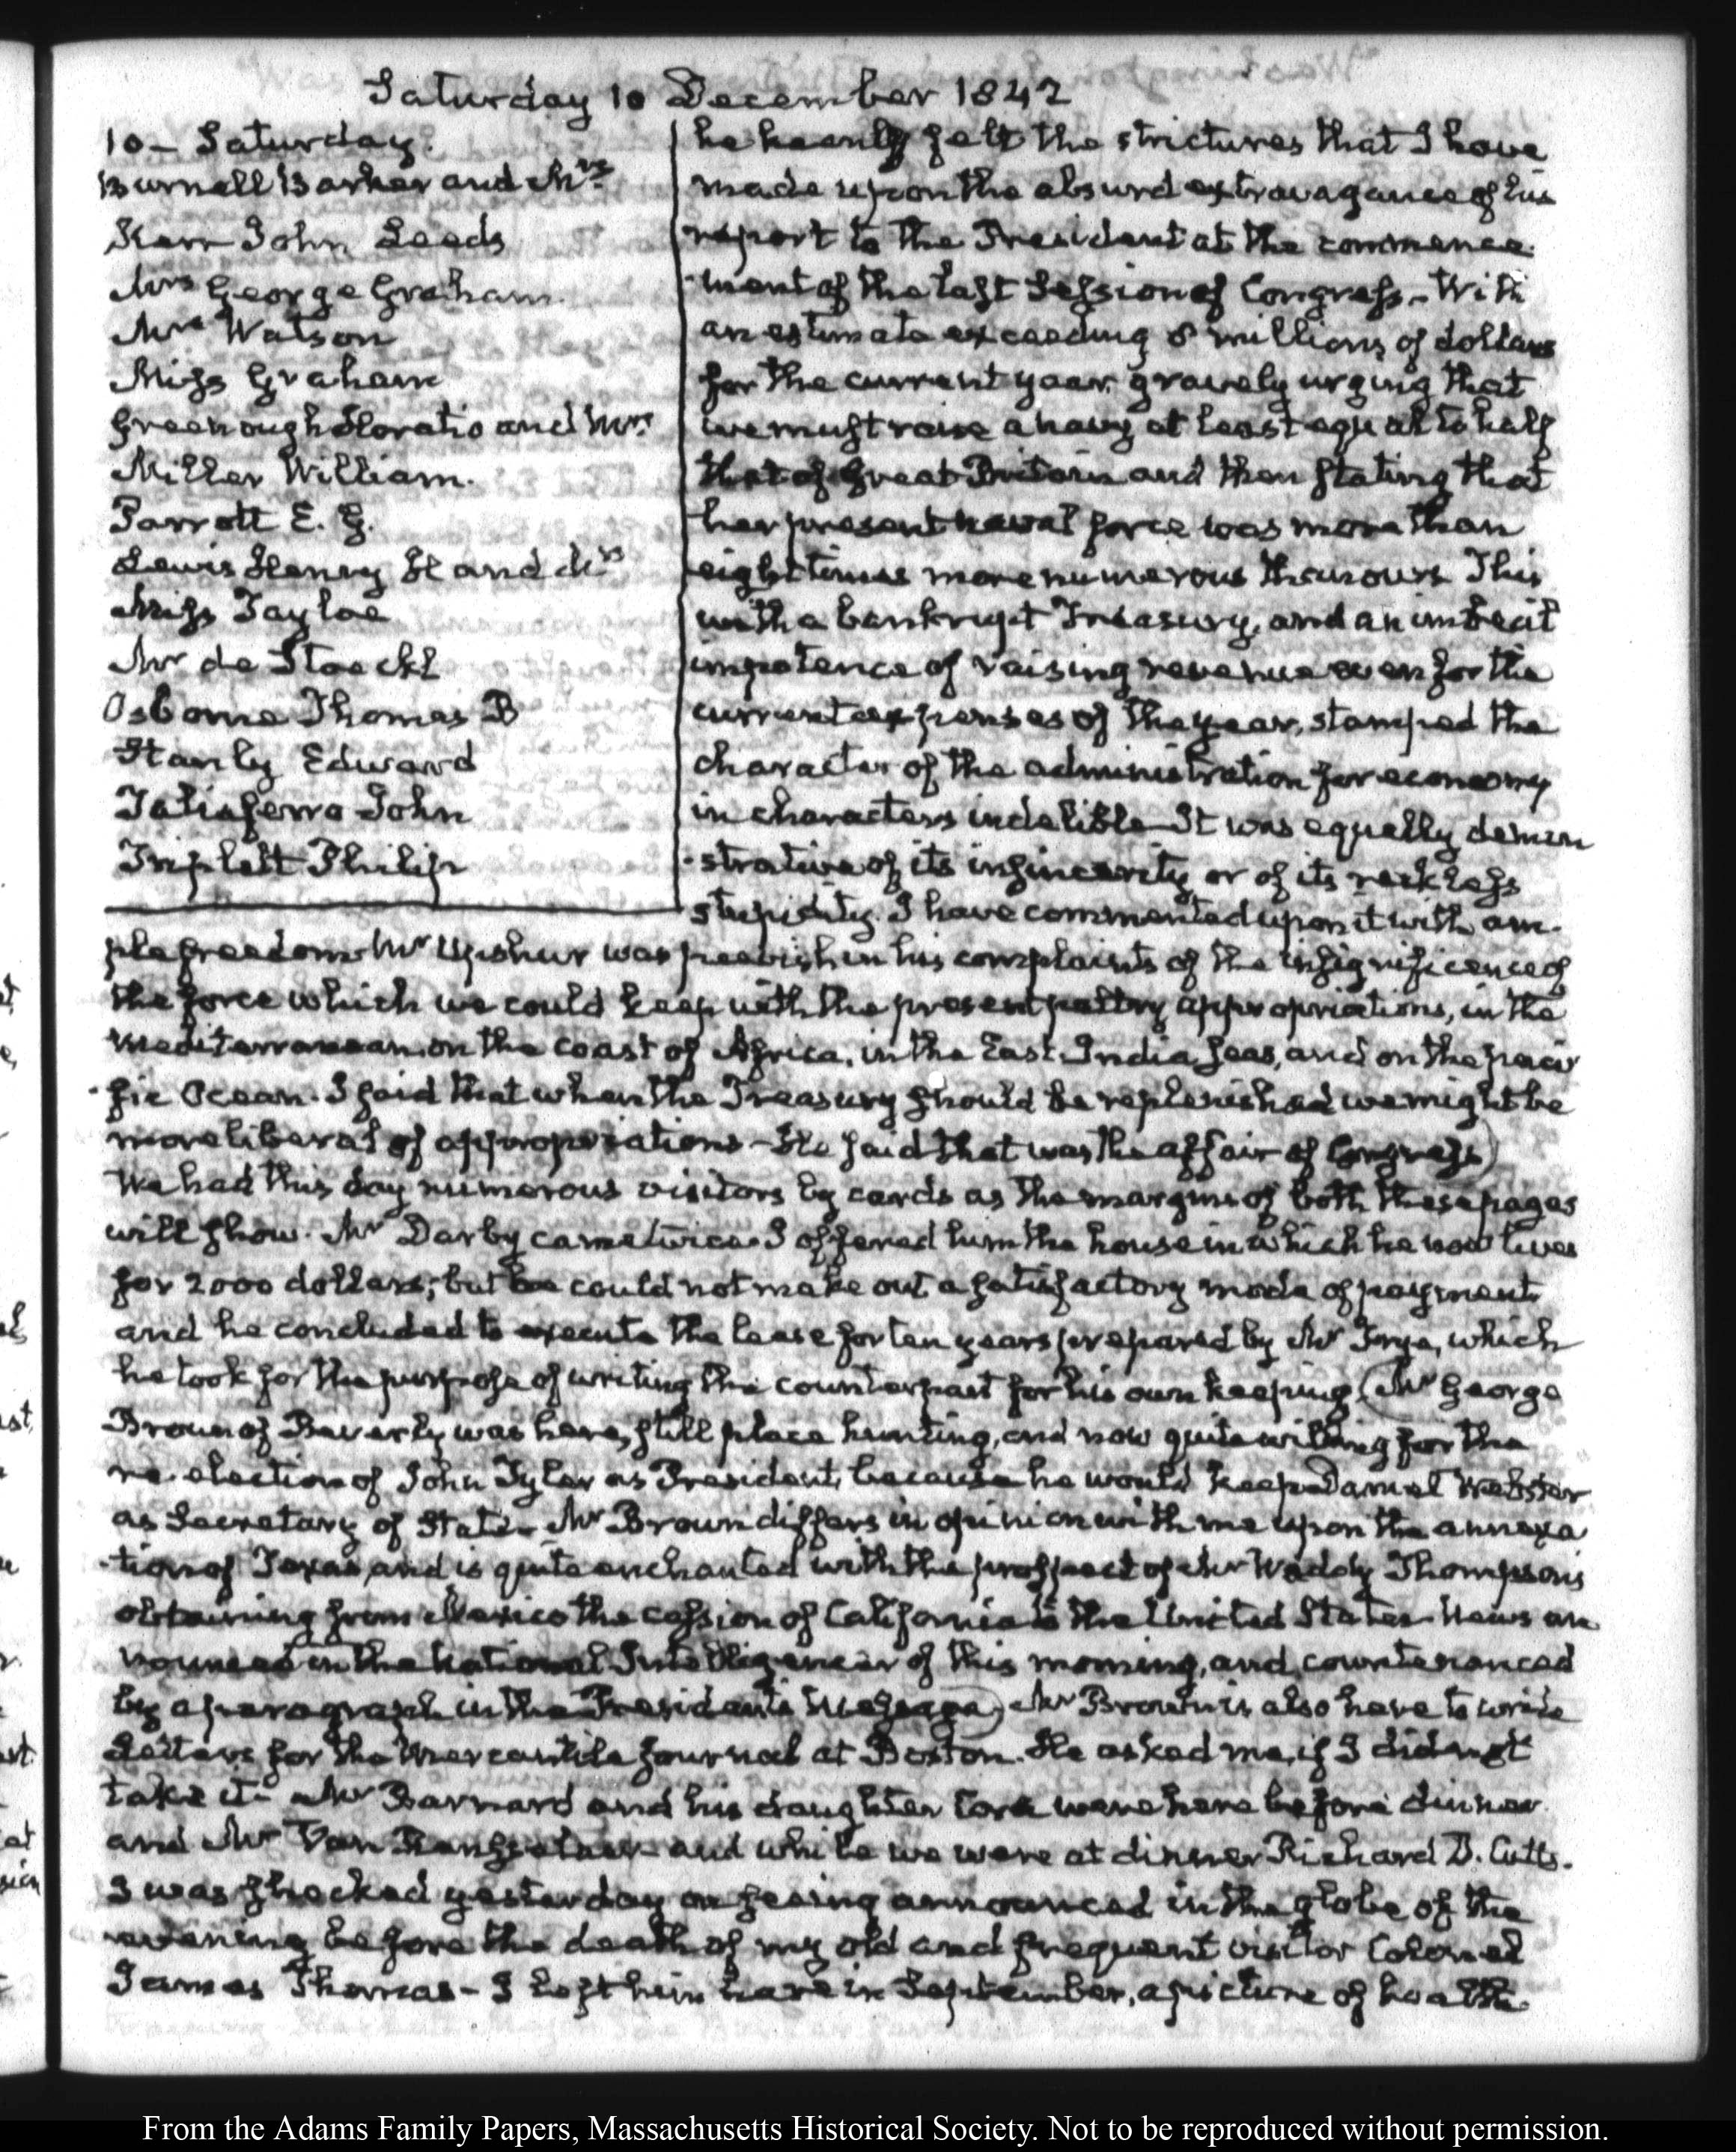 Saturday 10 December 1842
10 – Saturday.
Burnell Barker and Mrs
Kerr John Leeds
Mrs George Graham
Mrs Watson
Miss Graham
Greenough Horatio and Mrs
Miller William.
Parrott E. G.
Lewis Henry H and Mrs
Miss Tayloe
Mr de Stoeckl
Osborne Thomas B
Stanly Edward
Taliaferro John
Triplett Philip
he keenly felt the strictures that I have
made upon the absurd extravagance of his
report to the President at the commence
-ment of the last Session of Congress – With
an estimate exceeding 8 millions of dollars
for the current year gravely urging that
we must raise a navy at least equal to half
that of Great Britain and then stating that
her present naval force was more than
eight times more numerous than ours This
with a bankrupt Treasury, and an imbecil
impotence of raising revenue even for the
current expenses of the year, stamped the
character of the administration for economy
in characters indelible – It was equally demon
-strative of its insincerity or of its reckless
stupidity. I have commented upon it with am-
ple freedom – Mr Upshur was peevish in his complaints of the insignificance of
the force which we could keep with the present paltry appropriations, in the
Mediterranean on the coast of Africa, in the East India seas, and on the paci
-fic Ocean. I said that when the Treasury should be replenished we might be
more liberal of appropriations – He said that was the affair of Congress)
We had this day numerous visitors by cards as the margins of both these pages
will show. Mr Darby came twice. I offered him the house in which he now lives
for 2000 dollars; but he could not make out a satisfactory mode of payment
and he concluded to execute the lease for ten years prepared by Mr Frye, which
he took for the purpose of writing the counterpart for his own keeping. (Mr George
Brown of Beverly was here, still place hunting, and now quite willing for the
re-election of John Tyler as President, because he would keep Daniel Webster
as Secretary of State – Mr Brown differs in opinion with me upon the annexa
-tion of Texas and is quite enchanted with the prospect of Mr Waddy Thompson's
obtaining from Mexico the cession of California to the United States – News an
nounced in the National Intelligencer of this morning, and countenanced
by a paragraph in the President's Message) Mr Brown is also here to write
Letters for the Mercantile Journal at Boston. He asked me, if I did not
take it – Mr Barnard and his daughter Cora were here before dinner
and Mr Van Rensselaer – and while we were at dinner Richard D. Cutts.
I was shocked yesterday on seeing announced in the globe of the
evening before the death of my old and frequent visitor Colonel
James Thomas – I left him here in September, a picture of health.
From the Adams Family Papers, Massachusetts Historical Society. Not to be reproduced without permission.